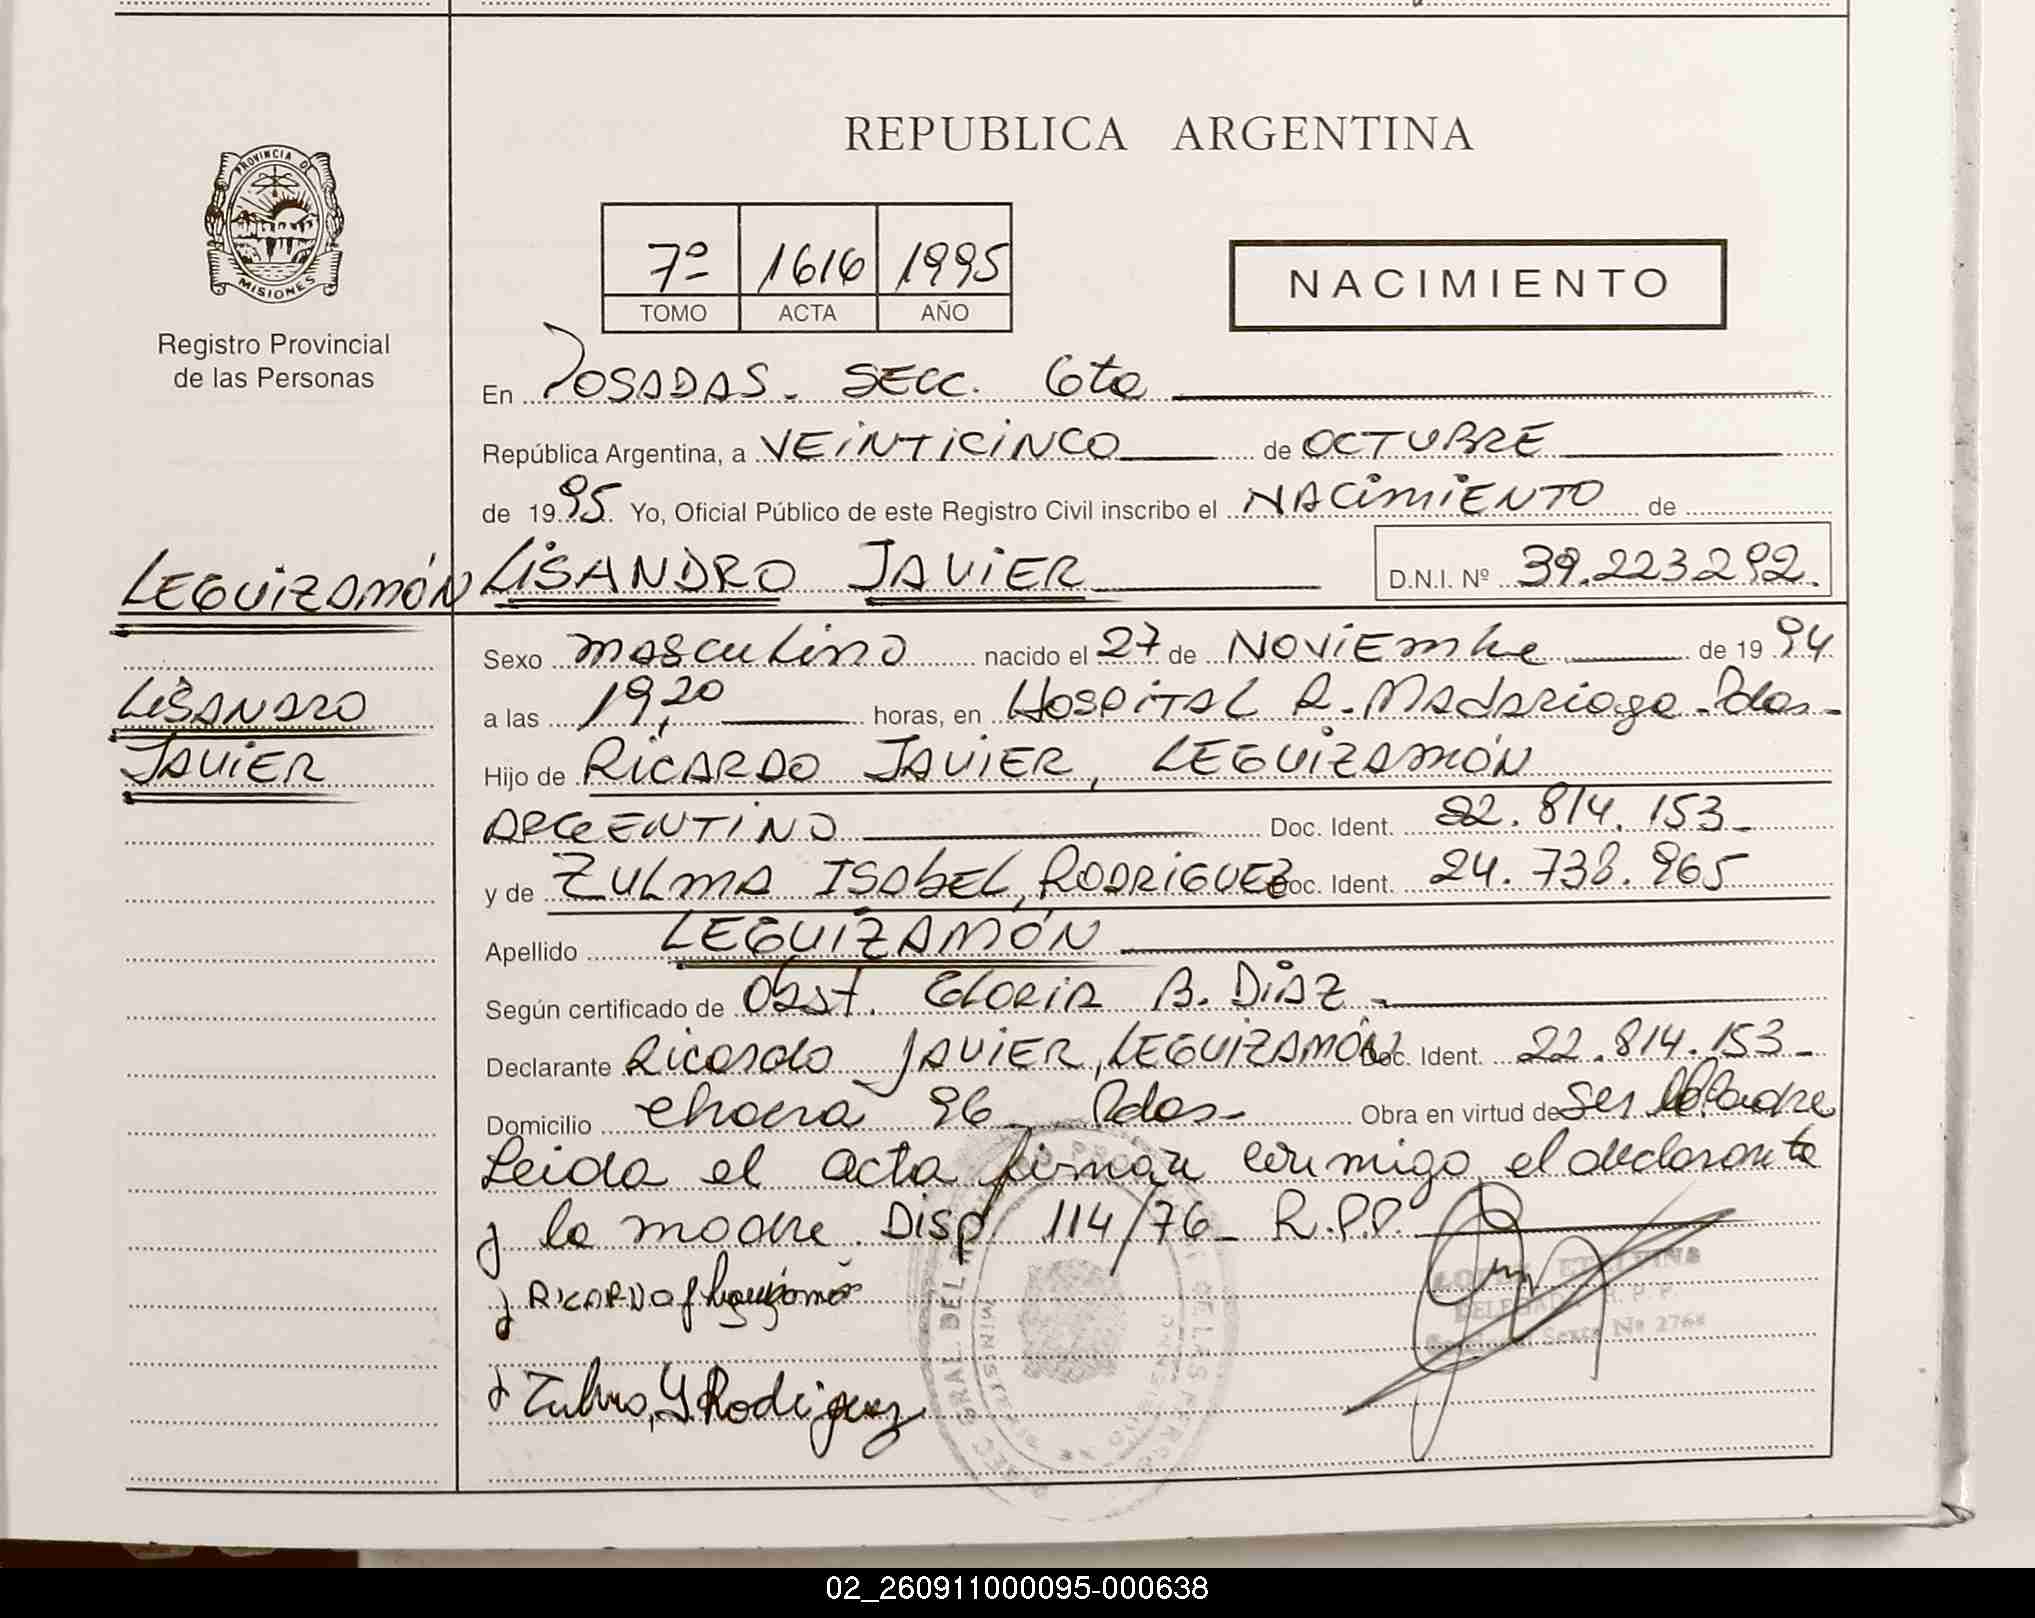 REPUBLICA ARGENTINA
PROVINCIA DE
MISIONES
Registro Provincial
de las Personas
7º 1616 1995
TOMO ACTA AÑO
NACIMIENTO
En POSADAS - SECC. 6ta
República Argentina, a VEINTICINCO de OCTUBRE
de 1995. Yo, Oficial Público de este Registro Civil inscribo el NACIMIENTO de
LEGUIZAMÓN LISANDRO JAVIER D.N.I. Nº 39.223.292.
Sexo masculino nacido el 27 de NOVIEMbre de 1994
LISANDRO
a las 19,20 horas, en HOSPITAL R. Madariaga - Pdas-
JAVIER
Hijo de RICARDO JAVIER, LEGUIZAMÓN
ARGENTINO Doc. Ident. 22.814.153-
y de ZULMA ISABEL, RODRIGUEZ Doc. Ident. 24.738.965
Apellido LEGUIZAMÓN
Según certificado de Obst. GLORIA B. DIAZ -
Declarante Ricardo JAVIER, LEGUIZAMÓN Doc. Ident. 22.814.153-
Domicilio chacra 96 - Pdas- Obra en virtud de ser el Padre
Leida el acta firman conmigo el declarante
y la madre. Disp 114/76 - R.P.P.
RICARDO J Leguizamón
Zulma, Y Rodriguez
02_260911000095-000638